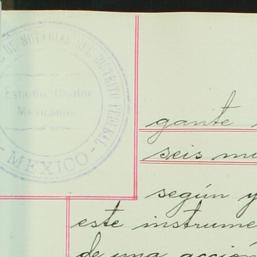 DE NOTARIAS DEL DISTRITO FEDERAL
Estados Unidos
Mexicanos
- MEXICO -
gante
seis
según y
este instrume
de una acción